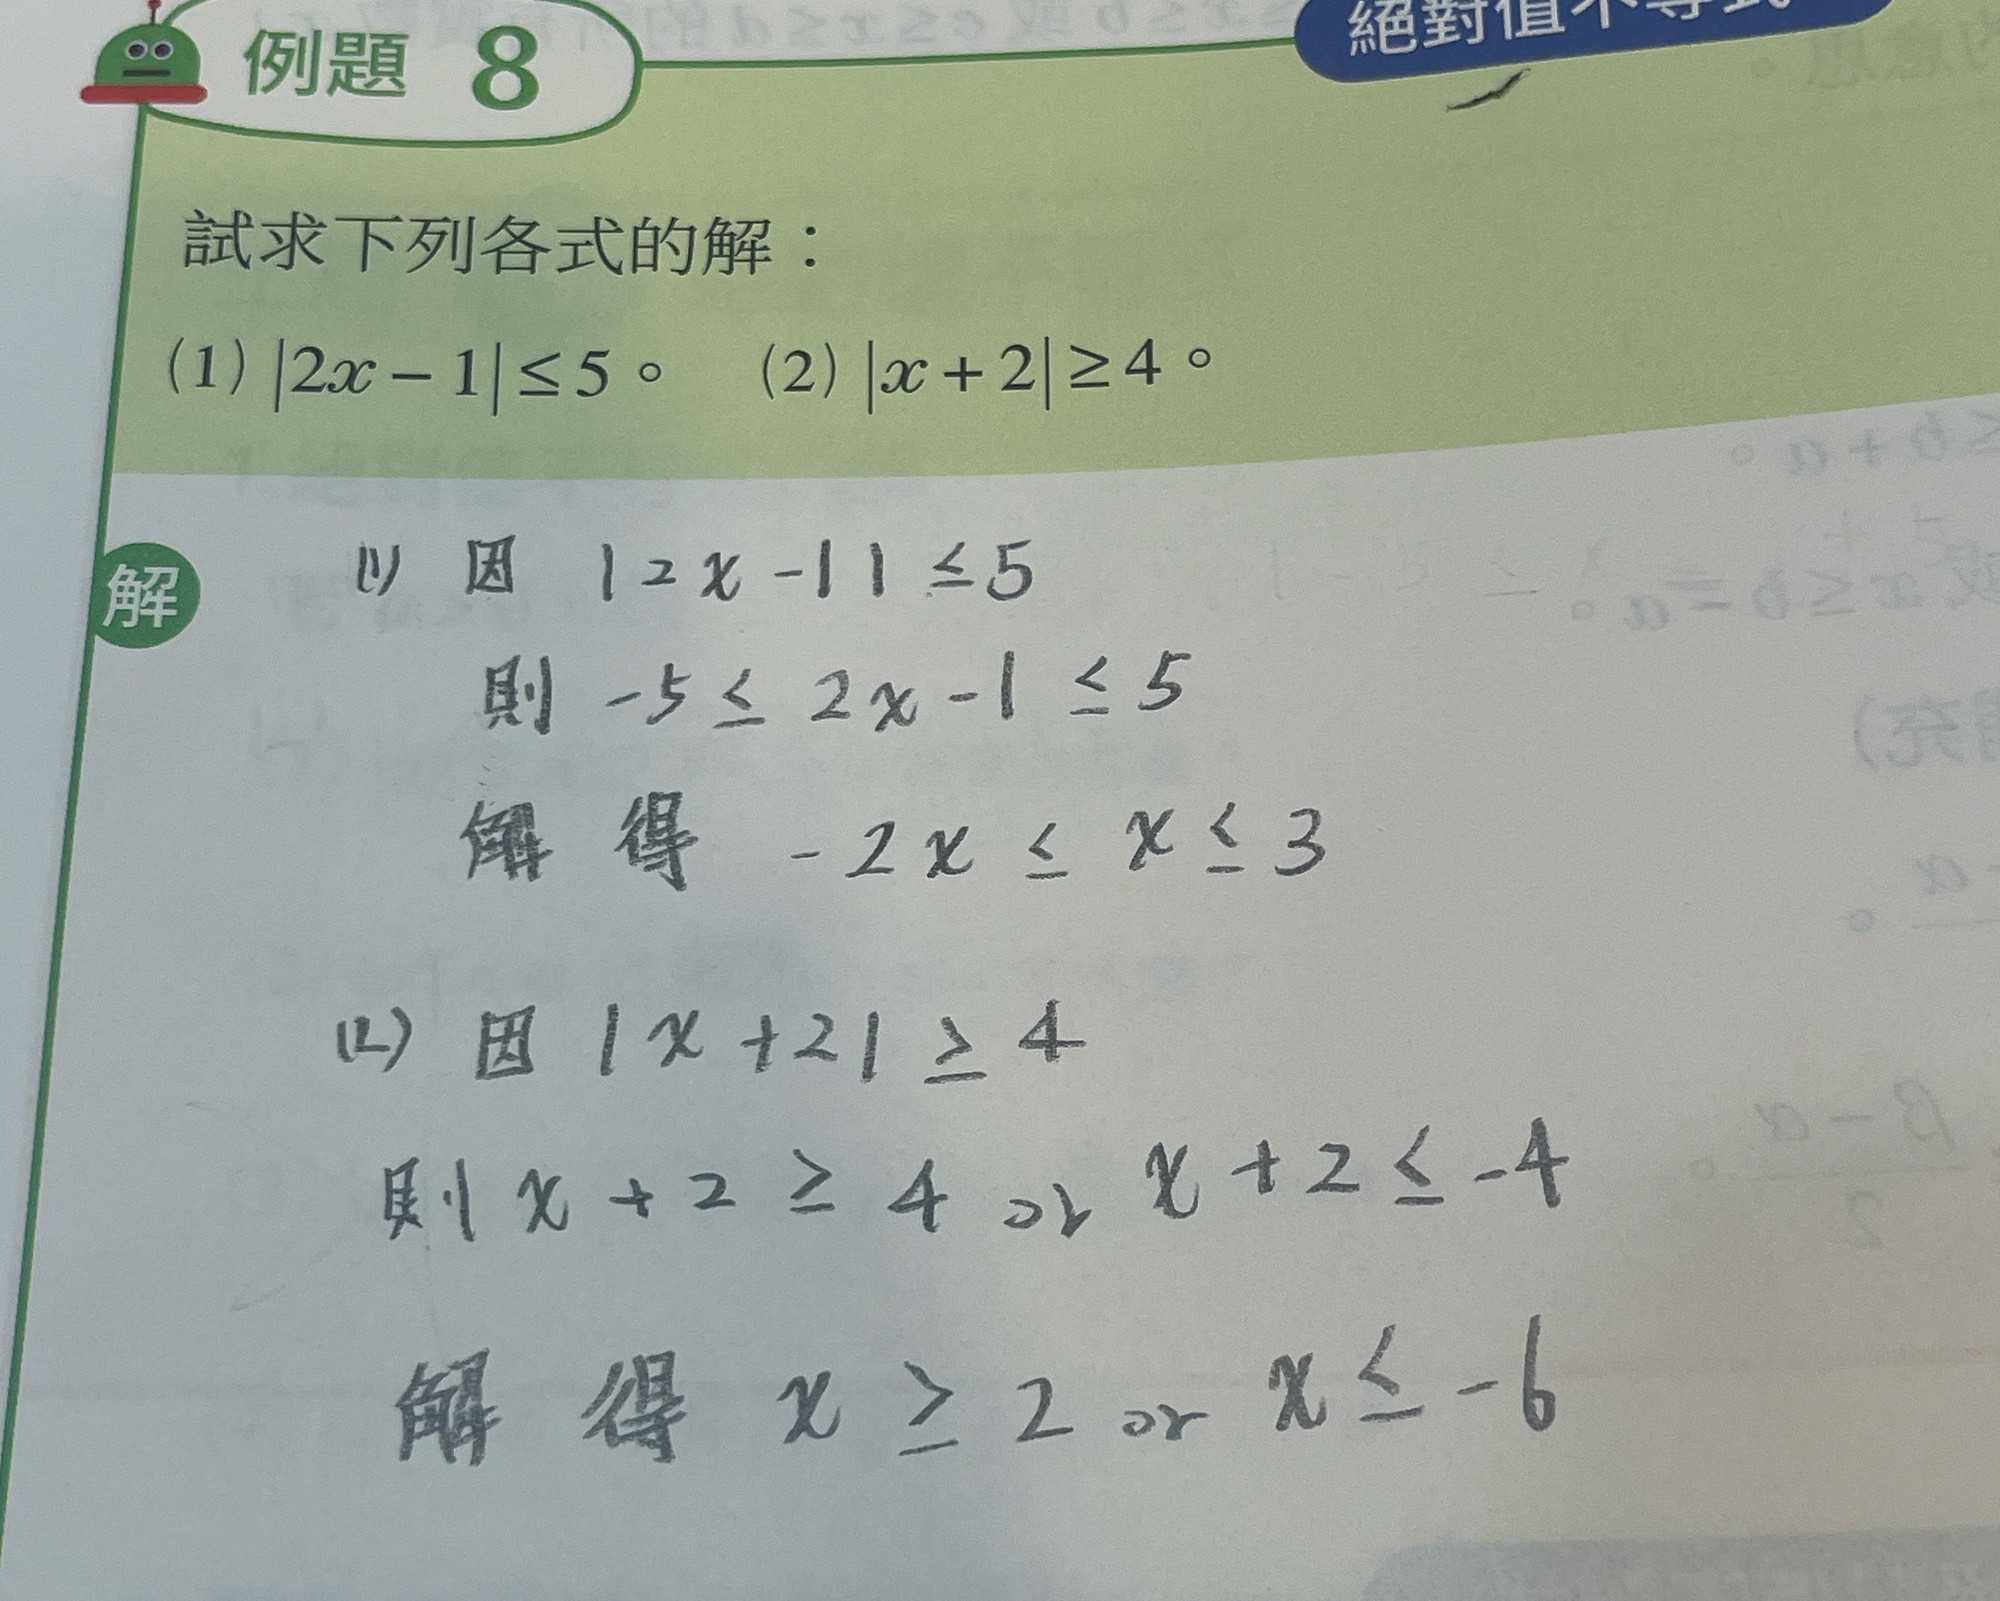 例題 8
絕對值不等式
試求下列各式的解：
(1) |2x − 1| ≤ 5。 (2) |x + 2| ≥ 4。
解
(1) 因 |2x - 1| ≤ 5
則 -5 ≤ 2x - 1 ≤ 5
解得 -2x ≤ x ≤ 3
(2) 因 |x + 2| ≥ 4
則 x + 2 ≥ 4 or x + 2 ≤ -4
解得 x ≥ 2 or x ≤ -6